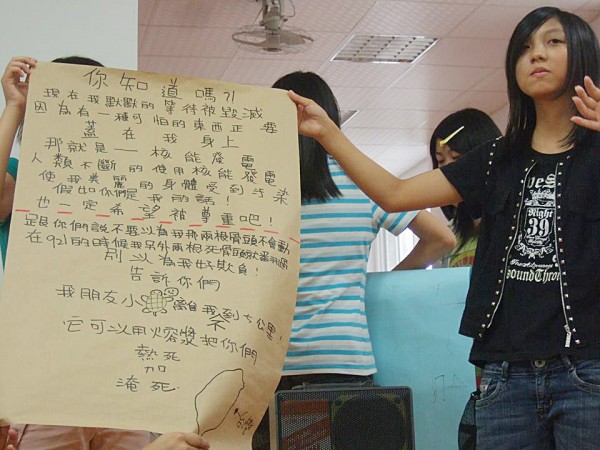 你知道嗎?!
現在我默默的等待被毀滅
因為有一種可怕的東西正要
蓋在我身上
那就是——核能發電
人類不斷的使用核能發電
使我美麗的身體受到污染
假如你們是我的話!
也一定希望被尊重吧!
跟你們說不要以為我那兩根骨頭不會動
在921的時候我另外兩根死骨頭
別以為我好欺負!
告訴你們
我朋友小離我不到5公里!
它可以用熔漿把你們
熱死
加
淹死
Night
39